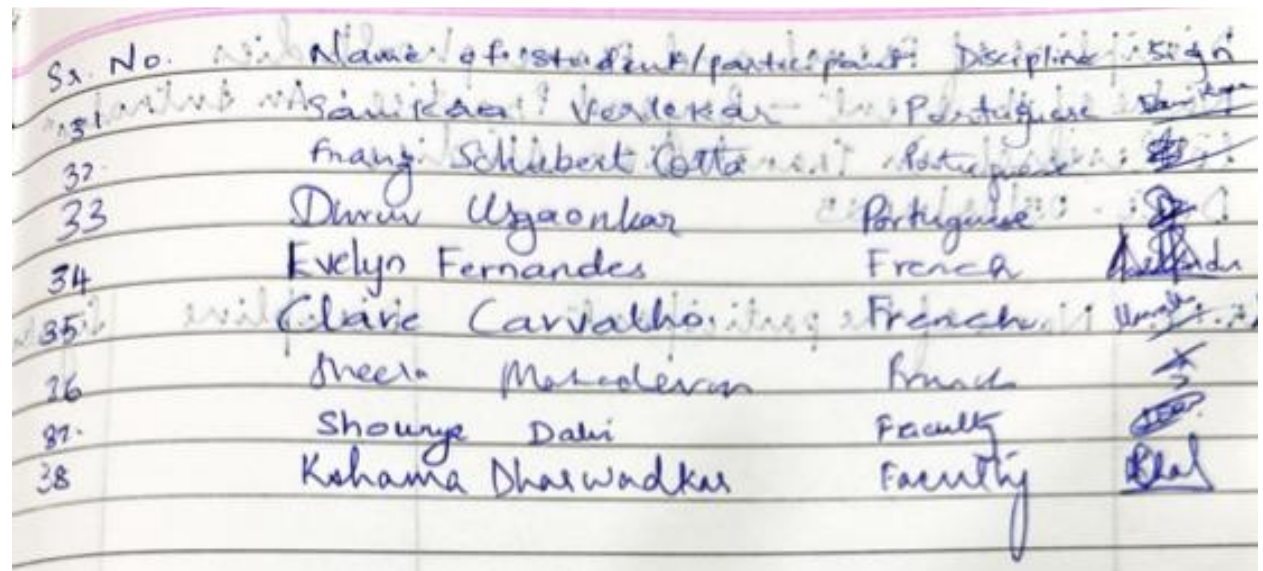 Sr. No. Name of student/participant Discipline Sign
31 Sanikaa Verlekar Portuguese
32. Franz Schubert Cotta Portuguese
33 Dhruv Usgaonkar Portuguese
34 Evelyn Fernandes French
35 Clarie Carvalho French
36 Sheela Mahadevan French
37. Shourye Dalvi Faculty
38 Kshama Dharwadkar Faculty